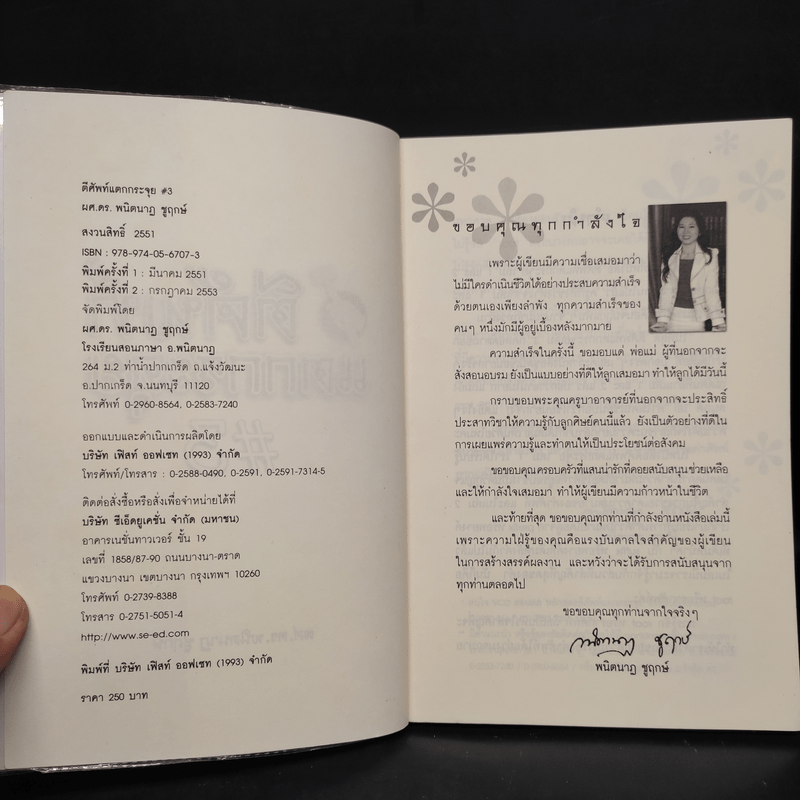 ตีศัพท์แตกกระจุย #3
ผศ.ดร. พนิตนาฏ ชูฤกษ์
สงวนสิทธิ์ 2551
ISBN : 978-974-05-6707-3
พิมพ์ครั้งที่ 1 : มีนาคม 2551
พิมพ์ครั้งที่ 2 : กรกฎาคม 2553
จัดพิมพ์โดย
ผศ.ดร. พนิตนาฏ ชูฤกษ์
โรงเรียนสอนภาษา อ.พนิตนาฏ
264 ม.2 ท่าน้ำปากเกร็ด ถ.แจ้งวัฒนะ
อ.ปากเกร็ด จ.นนทบุรี 11120
โทรศัพท์ 0-2960-8564, 0-2583-7240
ออกแบบและดำเนินการผลิตโดย
บริษัท เฟิสท์ ออฟเซท (1993) จำกัด
โทรศัพท์/โทรสาร : 0-2588-0490, 0-2591, 0-2591-7314-5
ติดต่อสั่งซื้อหรือสั่งเพื่อจำหน่ายได้ที่
บริษัท ซีเอ็ดยูเคชั่น จำกัด (มหาชน)
อาคารเนชั่นทาวเวอร์ ชั้น 19
เลขที่ 1858/87-90 ถนนบางนา-ตราด
แขวงบางนา เขตบางนา กรุงเทพฯ 10260
โทรศัพท์ 0-2739-8388
โทรสาร 0-2751-5051-4
http://www.se-ed.com
พิมพ์ที่ บริษัท เฟิสท์ ออฟเซท (1993) จำกัด
ราคา 250 บาท
ขอบคุณทุกกำลังใจ
เพราะผู้เขียนมีความเชื่อเสมอมาว่า
ไม่มีใครดำเนินชีวิตได้อย่างประสบความสำเร็จ
ด้วยตนเองเพียงลำพัง ทุกความสำเร็จของ
คนๆ หนึ่งมักมีผู้อยู่เบื้องหลังมากมาย
ความสำเร็จในครั้งนี้ ขอมอบแด่ พ่อแม่ ผู้ที่นอกจากจะ
สั่งสอนอบรม ยังเป็นแบบอย่างที่ดีให้ลูกเสมอมา ทำให้ลูกได้มีวันนี้
กราบขอบพระคุณครูบาอาจารย์ที่นอกจากจะประสิทธิ์
ประสาทวิชาให้ความรู้กับลูกศิษย์คนนี้แล้ว ยังเป็นตัวอย่างที่ดีใน
การเผยแพร่ความรู้และทำตนให้เป็นประโยชน์ต่อสังคม
ขอขอบคุณครอบครัวที่แสนน่ารักที่คอยสนับสนุนช่วยเหลือ
และให้กำลังใจเสมอมา ทำให้ผู้เขียนมีความก้าวหน้าในชีวิต
และท้ายที่สุด ขอขอบคุณทุกท่านที่กำลังอ่านหนังสือเล่มนี้
เพราะความใฝ่รู้ของคุณคือแรงบันดาลใจสำคัญของผู้เขียน
ในการสร้างสรรค์ผลงาน และหวังว่าจะได้รับการสนับสนุนจาก
ทุกท่านตลอดไป
ขอขอบคุณทุกท่านจากใจจริงๆ
พนิตนาฏ ชูฤกษ์
พนิตนาฏ ชูฤกษ์